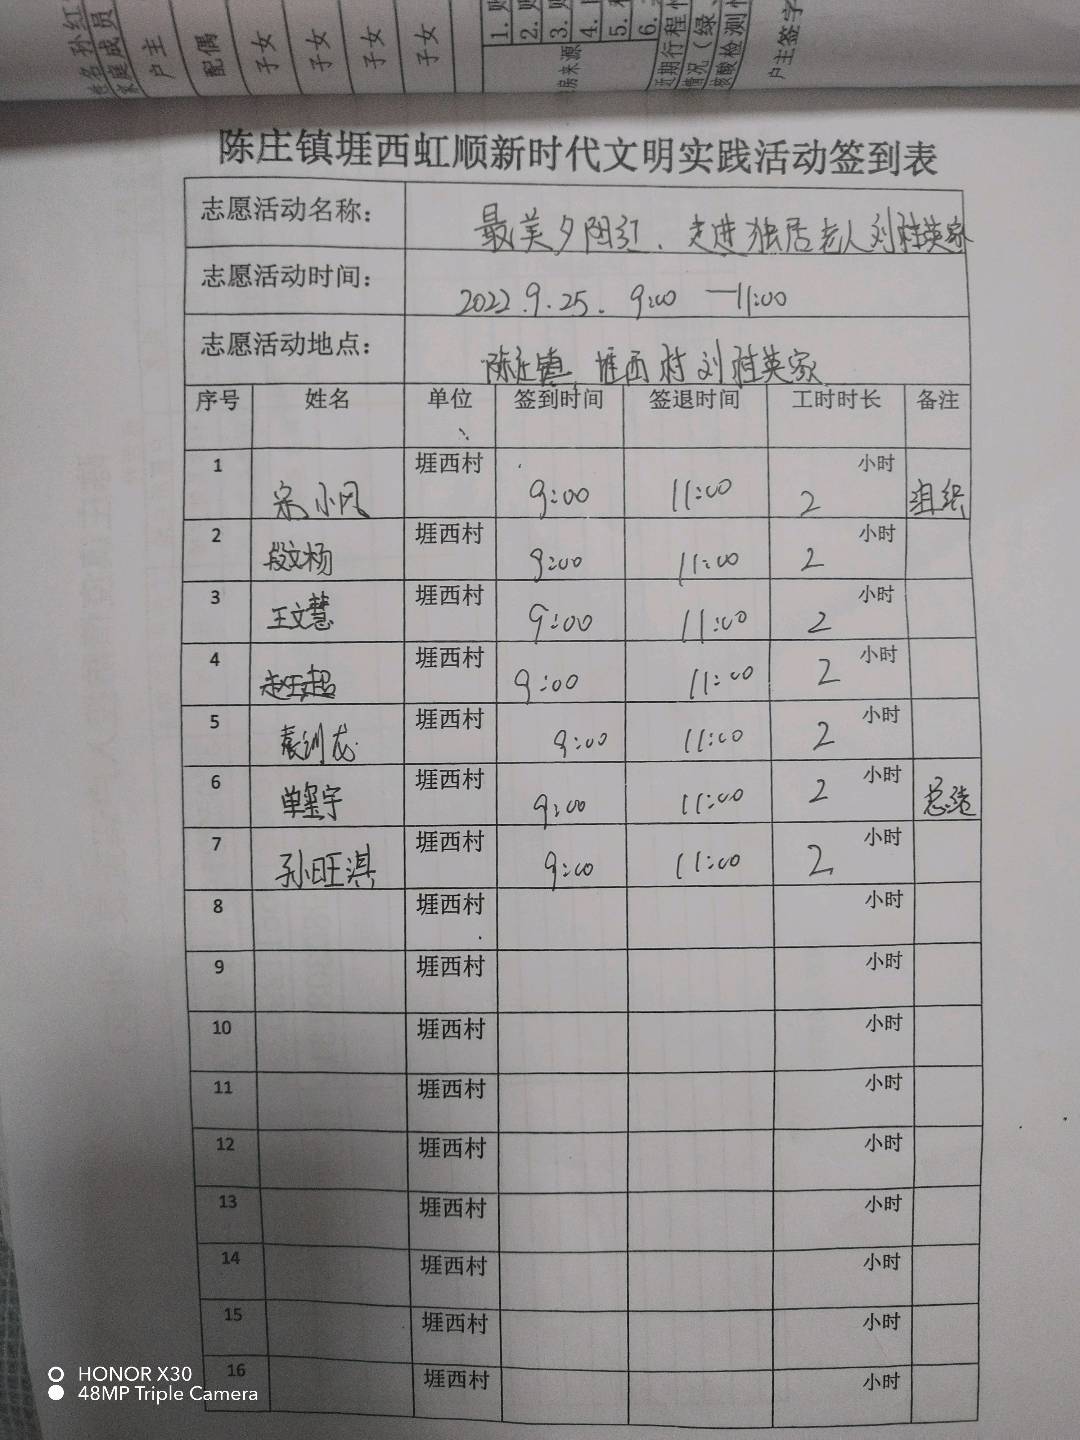 孙红
家庭成员
户主
配偶
子女
子女
子女
子女
1.
2.
3.
4.
5.
6.
房来源
近期行程
情况（绿、
核酸检测
户主签字
陈庄镇堐西虹顺新时代文明实践活动签到表
志愿活动名称： 最美夕阳红，走进独居老人刘桂英家
志愿活动时间： 2022.9.25. 9:00 —11:00
志愿活动地点： 陈庄镇 堐西村刘桂英家
序号 姓名 单位 签到时间 签退时间 工时时长 备注
1 宋小风 堐西村 9:00 11:00 2 小时 组织
2 段文杨 堐西村 9:00 11:00 2 小时
3 王文慧 堐西村 9:00 11:00 2 小时
4 赵玉超 堐西村 9:00 11:00 2 小时
5 袁训龙 堐西村 9:00 11:00 2 小时
6 单玺宇 堐西村 9:00 11:00 2 小时 总结
7 孙旺淇 堐西村 9:00 11:00 2 小时
8 堐西村 小时
9 堐西村 小时
10 堐西村 小时
11 堐西村 小时
12 堐西村 小时
13 堐西村 小时
14 堐西村 小时
15 堐西村 小时
16 堐西村 小时
HONOR X30
48MP Triple Camera